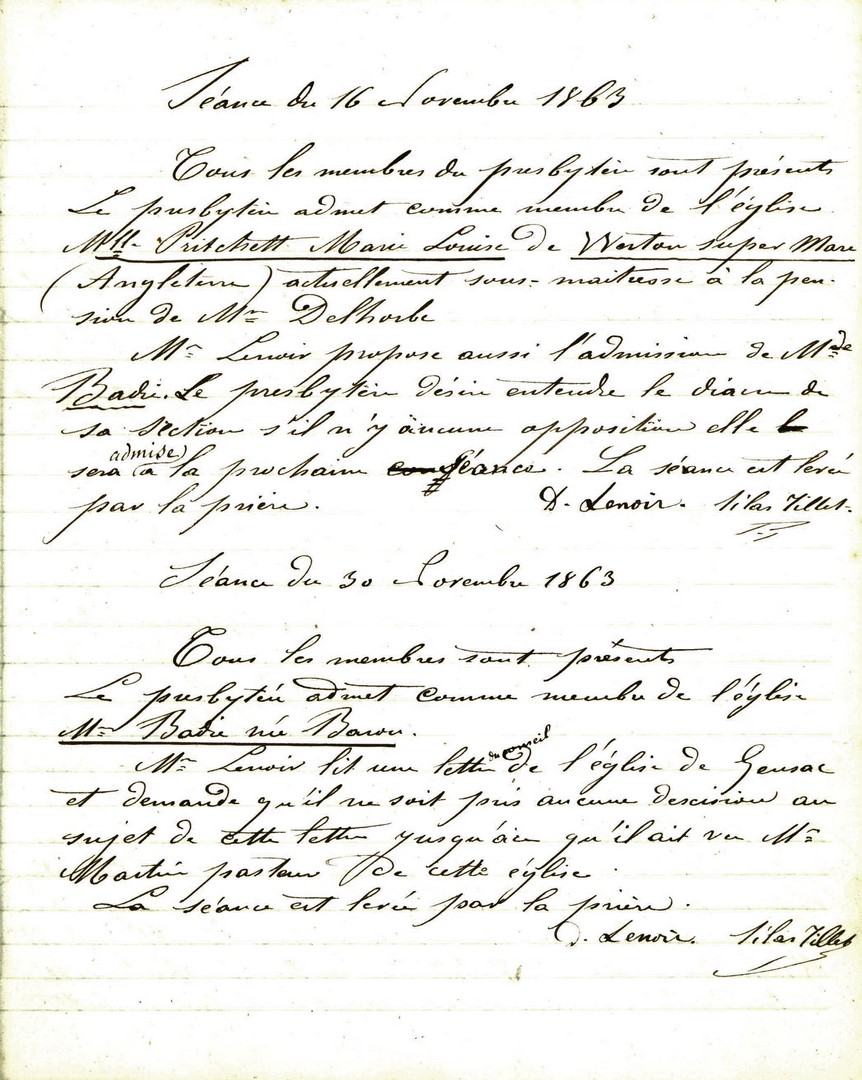 Séance du 16 Novembre 1863
Tous les membres du presbytère sont présents
Le presbytère admet comme membre de l'église
Mlle Pritchett Marie Louise de Werton super Mare
(Angleterre) actuellement sous-maitresse à la pen-
sion de Mr Delhorbe
Mr Lenoir propose aussi l'admission de Mde
Badie. Le presbytère désire entendre le diacre de
sa section s'il n'y a aucune opposition elle
sera admise à la prochaine séance. La séance est levée
par la prière. D. Lenoir. Silas Tillet
Séance du 30 Novembre 1863
Tous les membres sont présents
Le presbytère admet comme membre de l'église
Me Badie née Barou.
Mr Lenoir lit une lettre du conseil de l'église de Gensac
et demande qu'il ne soit pris aucune descision au
sujet de cette lettre jusqu'à ce qu'il ait vu Mr
Martin pasteur de cette église.
La séance est levée par la prière.
D. Lenoir. Silas Tillet